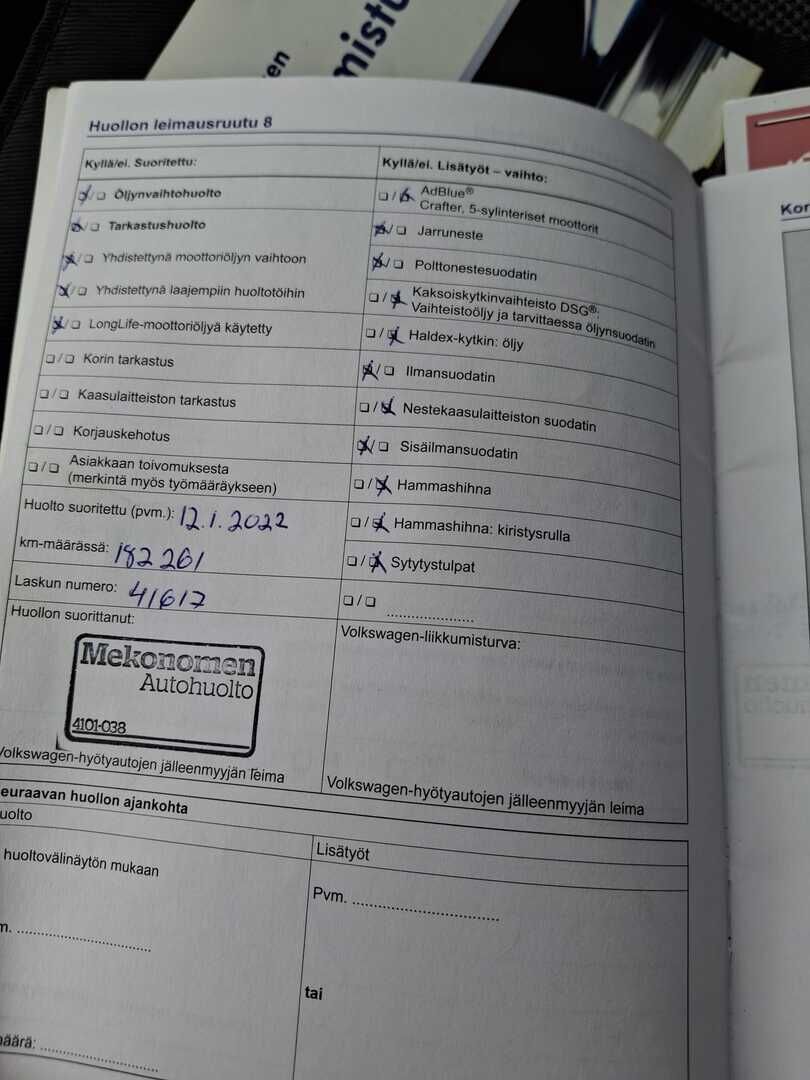 Huollon leimausruutu 8
Kyllä/ei. Suoritettu:
☒/☐ Öljynvaihtohuolto
☒/☐ Tarkastushuolto
☒/☐ Yhdistettynä moottoriöljyn vaihtoon
☒/☐ Yhdistettynä laajempiin huoltotöihin
☒/☐ LongLife-moottoriöljyä käytetty
☐/☐ Korin tarkastus
☐/☐ Kaasulaitteiston tarkastus
☐/☐ Korjauskehotus
☐/☐ Asiakkaan toivomuksesta
(merkintä myös työmääräykseen)
Huolto suoritettu (pvm.): 12.1.2022
km-määrässä: 182 261
Laskun numero: 41617
Huollon suorittanut:
Mekonomen
Autohuolto
4101-038
Volkswagen-hyötyautojen jälleenmyyjän leima
Kyllä/ei. Lisätyöt – vaihto:
☐/☒ AdBlue®
Crafter, 5-sylinteriset moottorit
☒/☐ Jarruneste
☒/☐ Polttonestesuodatin
☐/☒ Kaksoiskytkinvaihteisto DSG®:
Vaihteistoöljy ja tarvittaessa öljynsuodatin
☐/☒ Haldex-kytkin: öljy
☒/☐ Ilmansuodatin
☐/☒ Nestekaasulaitteiston suodatin
☒/☐ Sisäilmansuodatin
☐/☒ Hammashihna
☐/☒ Hammashihna: kiristysrulla
☐/☒ Sytytystulpat
☐/☐ ......................
Volkswagen-liikkumisturva:
Volkswagen-hyötyautojen jälleenmyyjän leima
euraavan huollon ajankohta
uolto
huoltovälinäytön mukaan
m. ..........................
äärä: ......................
Lisätyöt
Pvm. ............................
tai
Kor